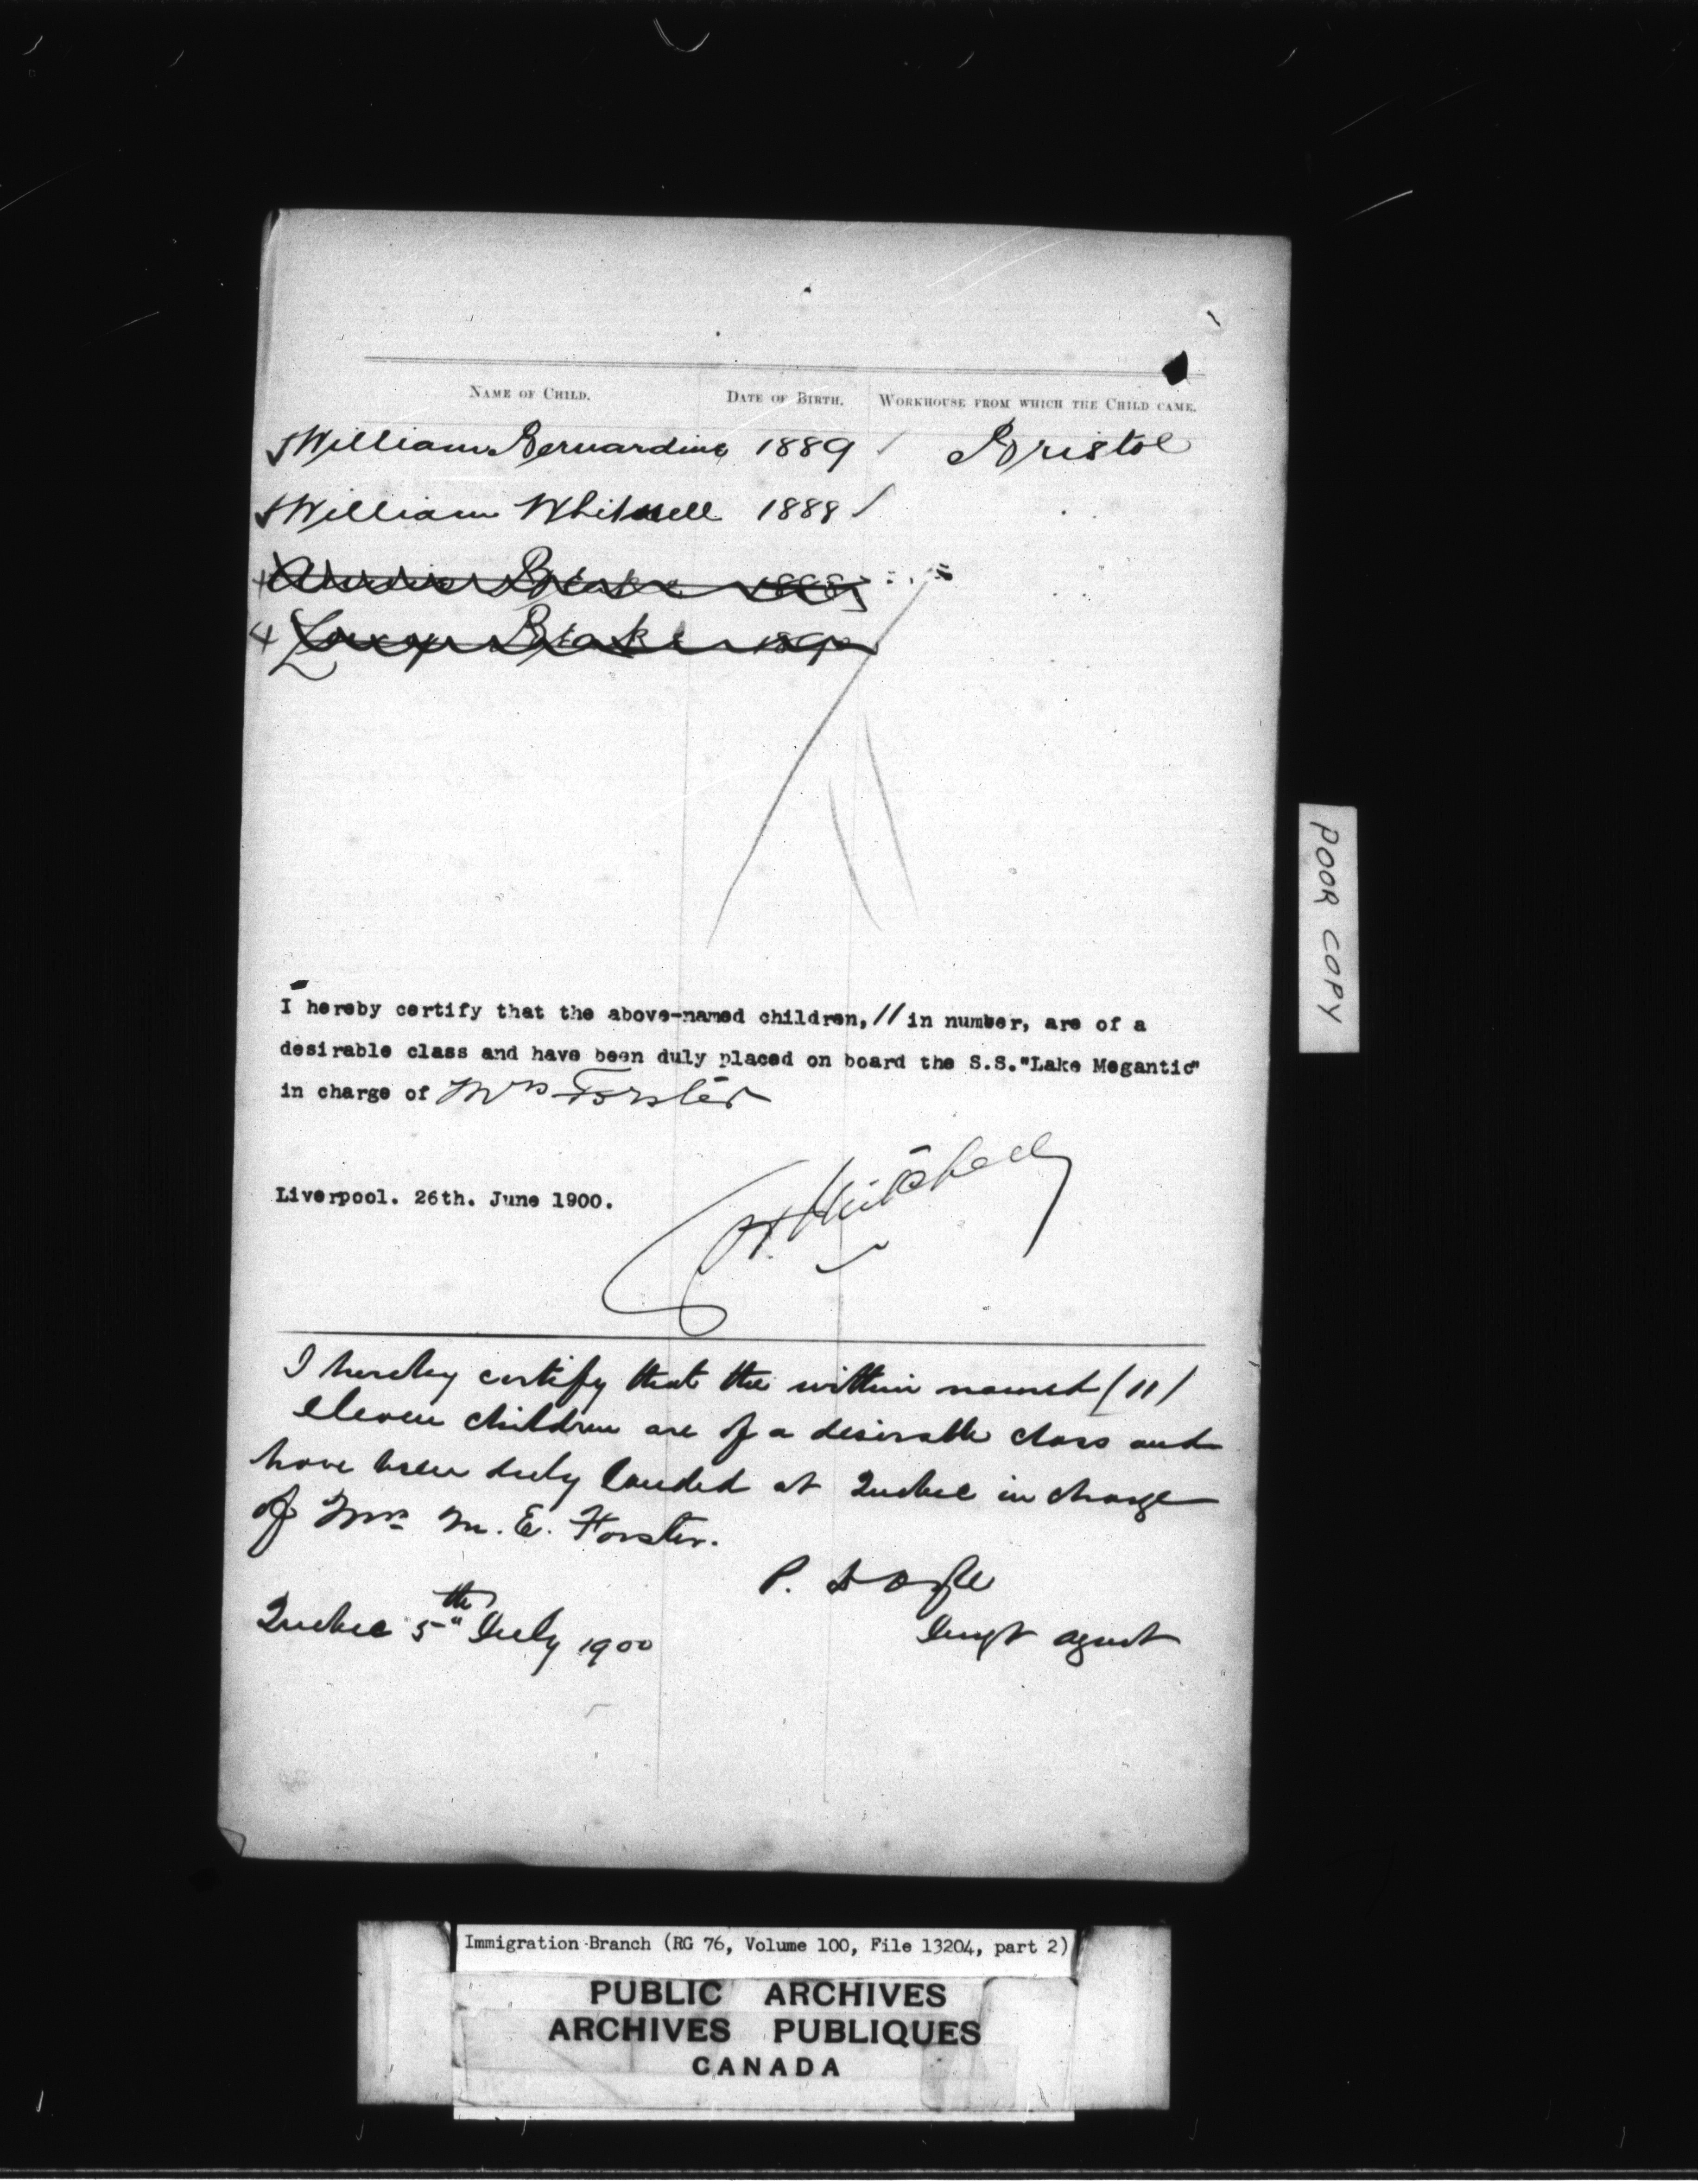 NAME OF CHILD. DATE OF BIRTH. WORKHOUSE FROM WHICH THE CHILD CAME.
William Bernardine 1889 Bristol
William Whitwell 1888
Blake
Lucy Blake 1890
I hereby certify that the above-named children, 11 in number, are of a
desirable class and have been duly placed on board the S.S."Lake Megantic"
in charge of Mrs Forster
Mitchell
Liverpool. 26th. June 1900.
I hereby certify that the within named (11)
eleven children are of a desirable class and
have been duly landed at Quebec in charge
of Mrs M. E. Forster.
P. Doyle
Quebec 5th July 1900
Immgt agent
POOR COPY
Immigration Branch (RG 76, Volume 100, File 13204, part 2)
PUBLIC ARCHIVES
ARCHIVES PUBLIQUES
CANADA